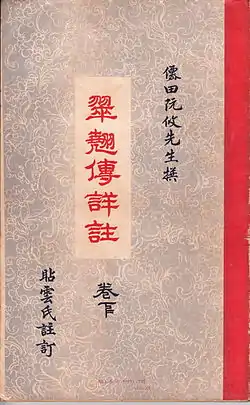 僊田阮攸先生撰
翠翹傳詳註
卷下
貼雲氏註訂